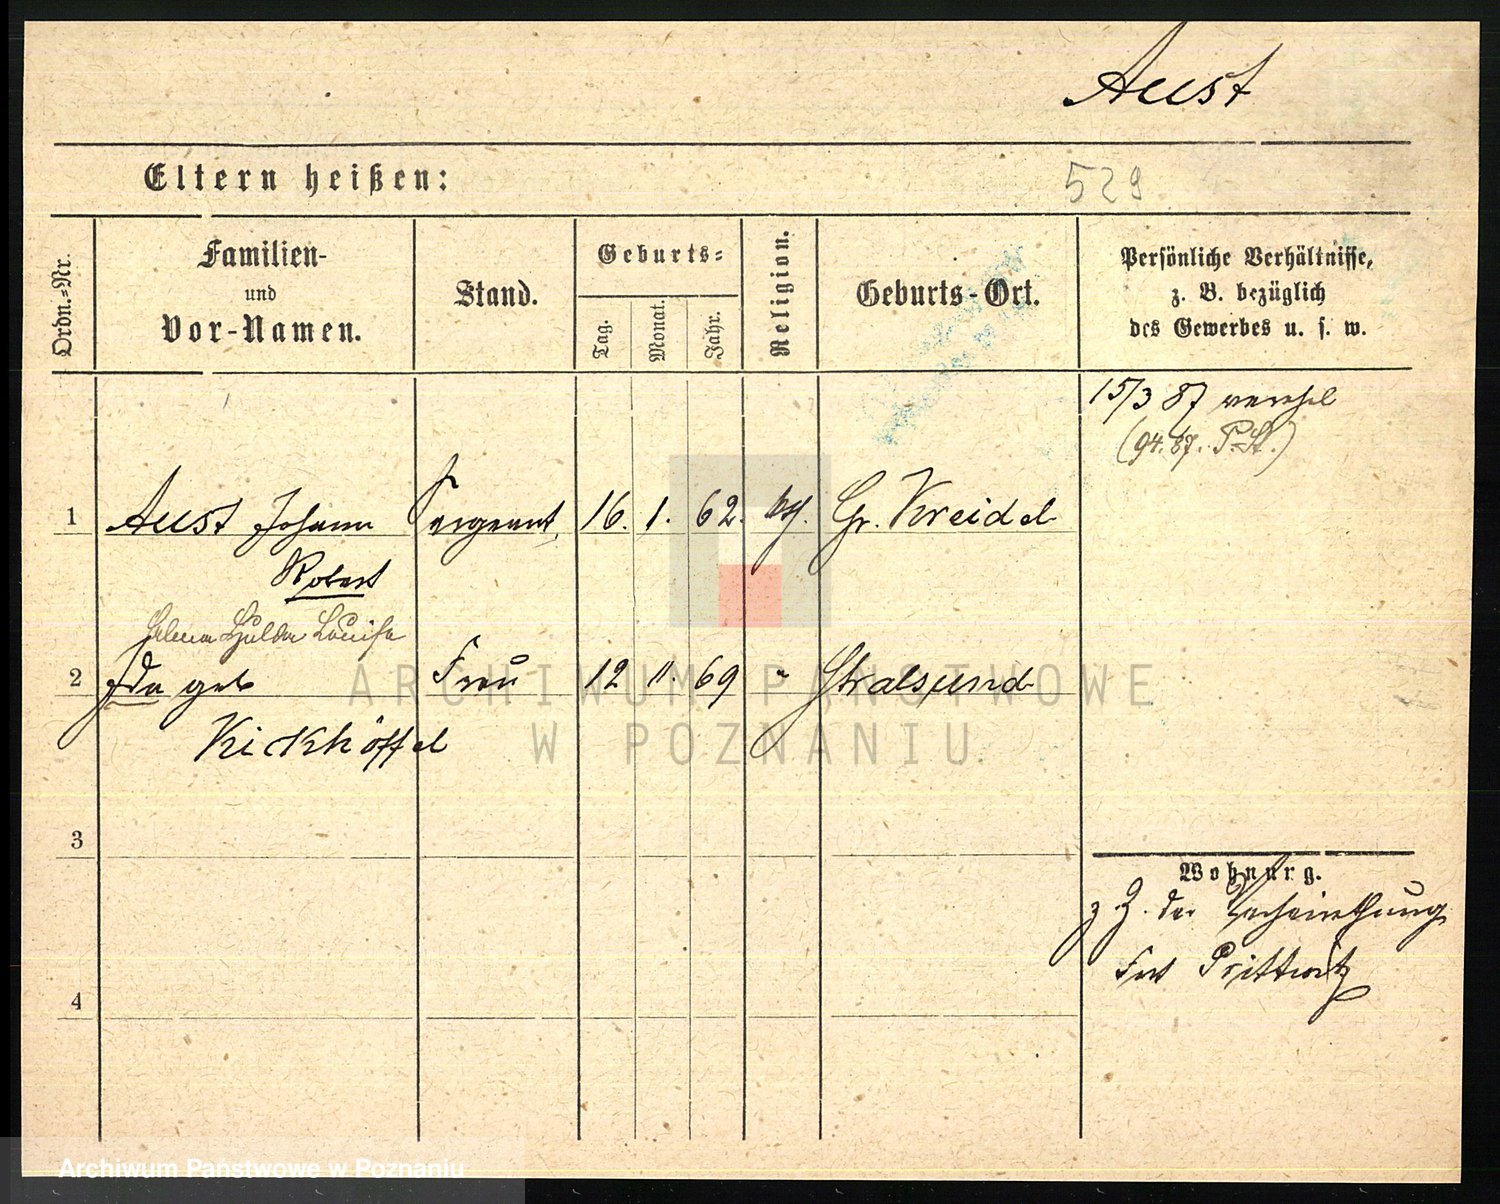 Aust
Eltern heißen:
529
Ordn.=Nr.
Familien-
und
Vor-Namen.
Stand.
Geburts=
Tag.
Monat.
Jahr.
Religion.
Geburts-Ort.
Persönliche Verhältnisse,
z. B. bezüglich
des Gewerbes u. s. w.
15/3 87 verehel
(94. 87. P. St.)
1 Aust Johann Sergeant 16. 1. 62. Gr. Kreidel
Robert
Helena Hulda Louise
2 Ida geb Frau 12 11. 69 " Stralsund
Kickhöffel
3
Wohnung.
z Z. der Verheirathung
Fort Prittwitz
4
ARCHIWUM PAŃSTWOWE
W POZNANIU
Archiwum Państwowe w Poznaniu